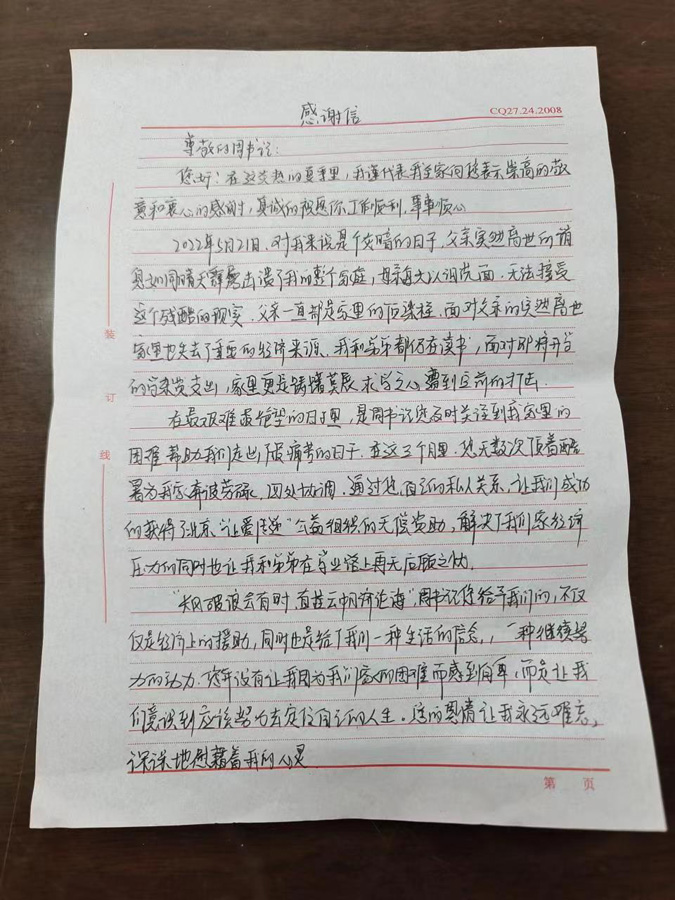 感谢信
CQ27.24.2008
尊敬的周书记:
您好!在这炎热的夏季里,我谨代表我全家向您表示崇高的敬
意和衷心的感谢,真诚的祝愿你工作顺利,事事顺心
2022年5月21日,对我来说是个灰暗的日子,父亲突然离世的消
息如同晴天霹雳击溃了我的整个家庭,母亲每天以泪洗面,无法接受
这个残酷的现实.父亲一直都是家里的顶梁柱,面对父亲的突然离世
家里也失去了重要的经济来源,我和弟弟都仍在读书,面对即将开学
的支出,家里更是踌躇莫展,求学之心遭到空前的打击.
在最艰难最绝望的日子里,是周书记您及时关注到我家里的
困难帮助我们走出了最痛苦的日子.在这三个月里,您无数次顶着酷
暑为我家奔波劳碌,四处协调,通过您自己的私人关系,让我们成功
的获得了北京"让爱传递"公益组织的无偿资助,解决了我们家经济
压力的同时也让我和弟弟在学业路上再无后顾之忧.
"长风破浪会有时,直挂云帆济沧海",周书记您给予我们的,不仅
仅是经济上的援助,同时也是给了我们一种生活的信念,一种继续努
力的动力.您并没有让我因为我们家的困难而感到自卑,而是让我
们意识到应该努力去定位自己的人生.您的恩情让我永远难忘,
深深地慰藉着我的心灵
装
订
线
第 页